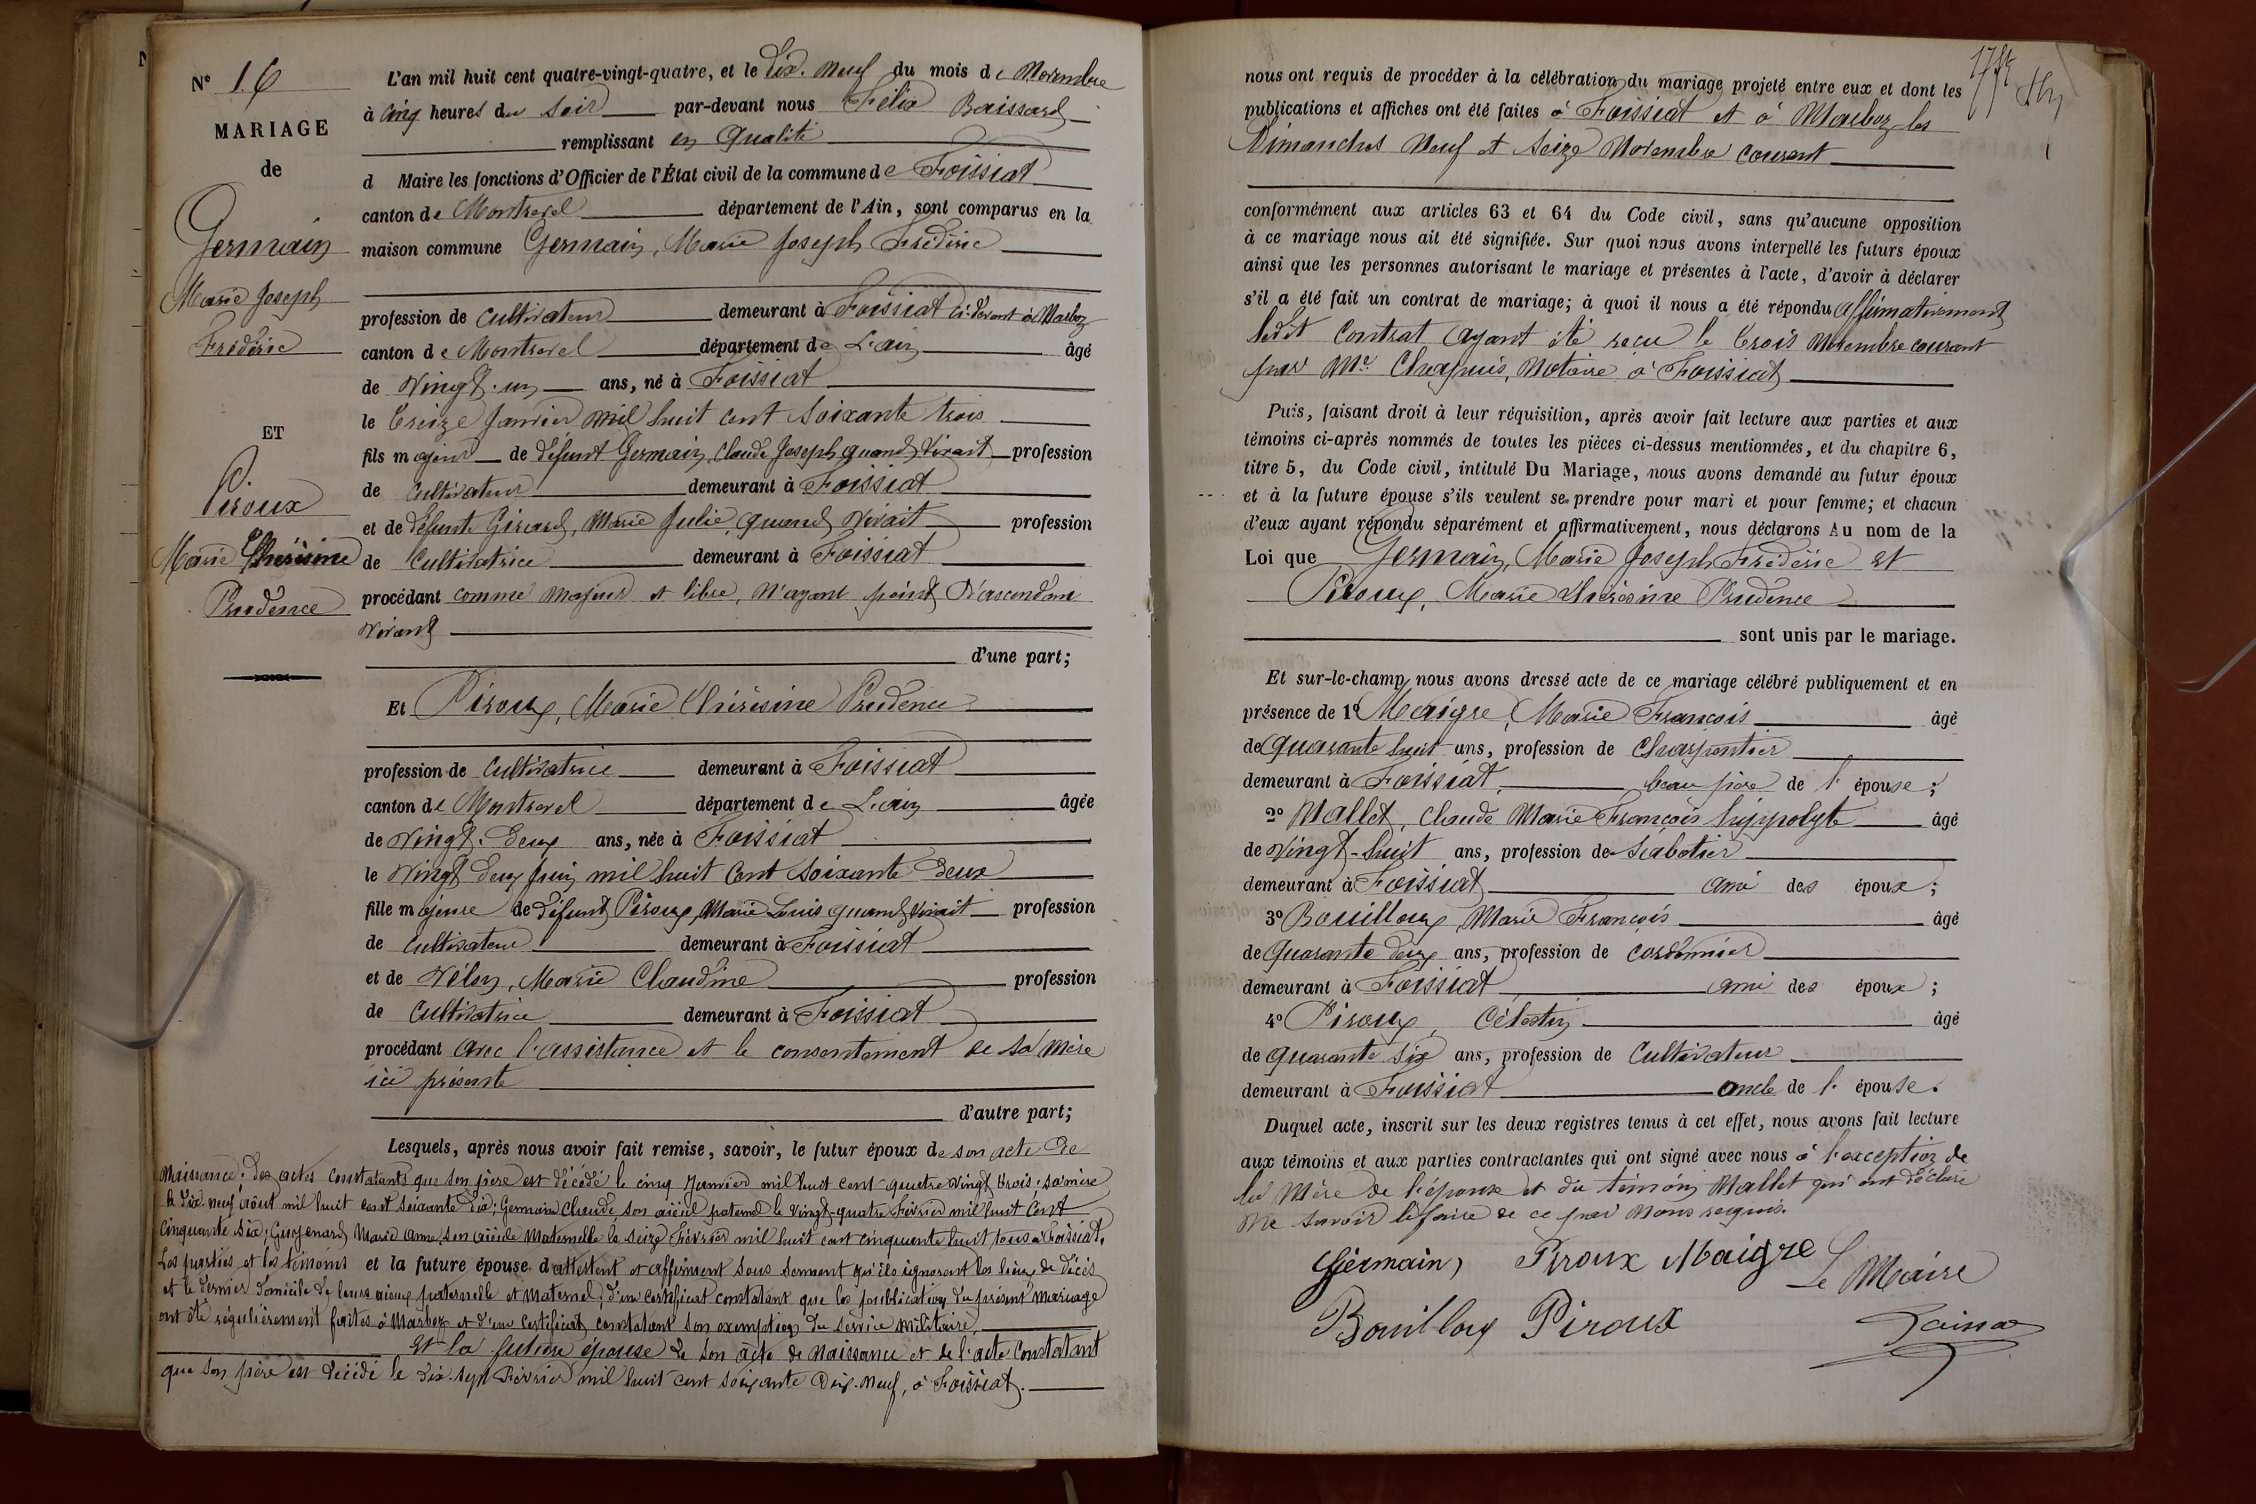 N° 16
MARIAGE
de
Germain
Marie Joseph
Frédéric
ET
Piroux
Marie Thérésine
Prudence
L'an mil huit cent quatre-vingt-quatre, et le Dix. Neuf du mois de Novembre
à cinq heures du soir par-devant nous Félix Boissard
remplissant en qualité
d Maire les fonctions d'Officier de l'État civil de la commune de Foissiat
canton de Montrevel département de l'Ain, sont comparus en la
maison commune Germain, Marie Joseph Frédéric
profession de cultivateur demeurant à Foissiat ci-devant à Marboz
canton de Montrevel département de L'ain âgé
de Vingt-un ans, né à Foissiat
le treize Janvier mil huit cent soixante trois
fils majeur de défunt Germain, Claude Joseph quand vivait profession
de cultivateur demeurant à Foissiat
et de défunte Girard, Marie Julie, quand vivait profession
de Cultivatrice demeurant à Foissiat
procédant comme majeur et libre, n'ayant point d'ascendant
vivant
d'une part;
Et Piroux, Marie Thérésine Prudence
profession de cultivatrice demeurant à Foissiat
canton de Montrevel département de L'ain âgée
de Vingt-deux ans, née à Foissiat
le Vingt deux juin mil huit cent soixante deux
fille majeure de défunt Piroux, Marie Louis quand vivait profession
de cultivateur demeurant à Foissiat
et de Vélon, Marie Claudine profession
de Cultivatrice demeurant à Foissiat
procédant avec l'assistance et le consentement de sa mère
ici présente
d'autre part;
Lesquels, après nous avoir fait remise, savoir, le futur époux de son acte de
Naissance; des actes constatants que son père est décédé le cinq Janvier mil huit cent quatre vingt trois; sa mère
le dix-neuf août mil huit cent soixante dix; Germain Claude, son aïeul paternel le vingt-quatre Février mil huit cent
cinquante six; Guyenard, Marie Anne, son aïeule maternelle le seize Février mil huit cent cinquante huit tous à Foissiat.
Les parties et les témoins et la future épouse d attestent et affirment sous serment qu'ils ignorent les lieux de décès
et le dernier domicile de leurs aïeux paternelle et maternel; d'un certificat constatant que les publication du présent mariage
ont été régulièrement faites à Marboz et d'un certificat constatant son exemption du service militaire,
Et la future épouse de son acte de naissance et de l'acte constatant
que son père est décédé le dix-sept Février mil huit cent soixante dix-neuf, à Foissiat.
nous ont requis de procéder à la célébration du mariage projeté entre eux et dont les
publications et affiches ont été faites à Foissiat et à Marboz les
Dimanches Neuf et Seize Novembre courant
conformément aux articles 63 et 64 du Code civil, sans qu'aucune opposition
à ce mariage nous ait été signifiée. Sur quoi nous avons interpellé les futurs époux
ainsi que les personnes autorisant le mariage et présentes à l'acte, d'avoir à déclarer
s'il a été fait un contrat de mariage; à quoi il nous a été répondu affirmativement
ledit contrat ayant été reçu le trois Novembre courant
par Me Chapuis, Notaire à Foissiat
Puis, faisant droit à leur réquisition, après avoir fait lecture aux parties et aux
témoins ci-après nommés de toutes les pièces ci-dessus mentionnées, et du chapitre 6,
titre 5, du Code civil, intitulé Du Mariage, nous avons demandé au futur époux
et à la future épouse s'ils veulent se prendre pour mari et pour femme; et chacun
d'eux ayant répondu séparément et affirmativement, nous déclarons Au nom de la
Loi que Germain, Marie Joseph Frédéric et
Piroux, Marie Thérésine Prudence
sont unis par le mariage.
Et sur-le-champ nous avons dressé acte de ce mariage célébré publiquement et en
présence de 1° Maigre, Marie François âgé
de quarante huit ans, profession de Charpentier
demeurant à Foissiat, beau père de l' épouse;
2° Mallet, Claude Marie François hyppolyte âgé
de Vingt-huit ans, profession de sabotier
demeurant à Foissiat ami des époux;
3° Bouilloux, Marie François âgé
de quarante deux ans, profession de cordonnier
demeurant à Foissiat, ami des époux;
4° Piroux, Célestin âgé
de quarante six ans, profession de Cultivateur
demeurant à Foissiat oncle de l' épouse.
Duquel acte, inscrit sur les deux registres tenus à cet effet, nous avons fait lecture
aux témoins et aux parties contractantes qui ont signé avec nous à l'exception de
la mère de l'épouse et du témoin Mallet qui ont déclaré
ne savoir le faire de ce par nous requis.
Germain, Piroux Maigre
Le Maire
Bouilloux Piroux